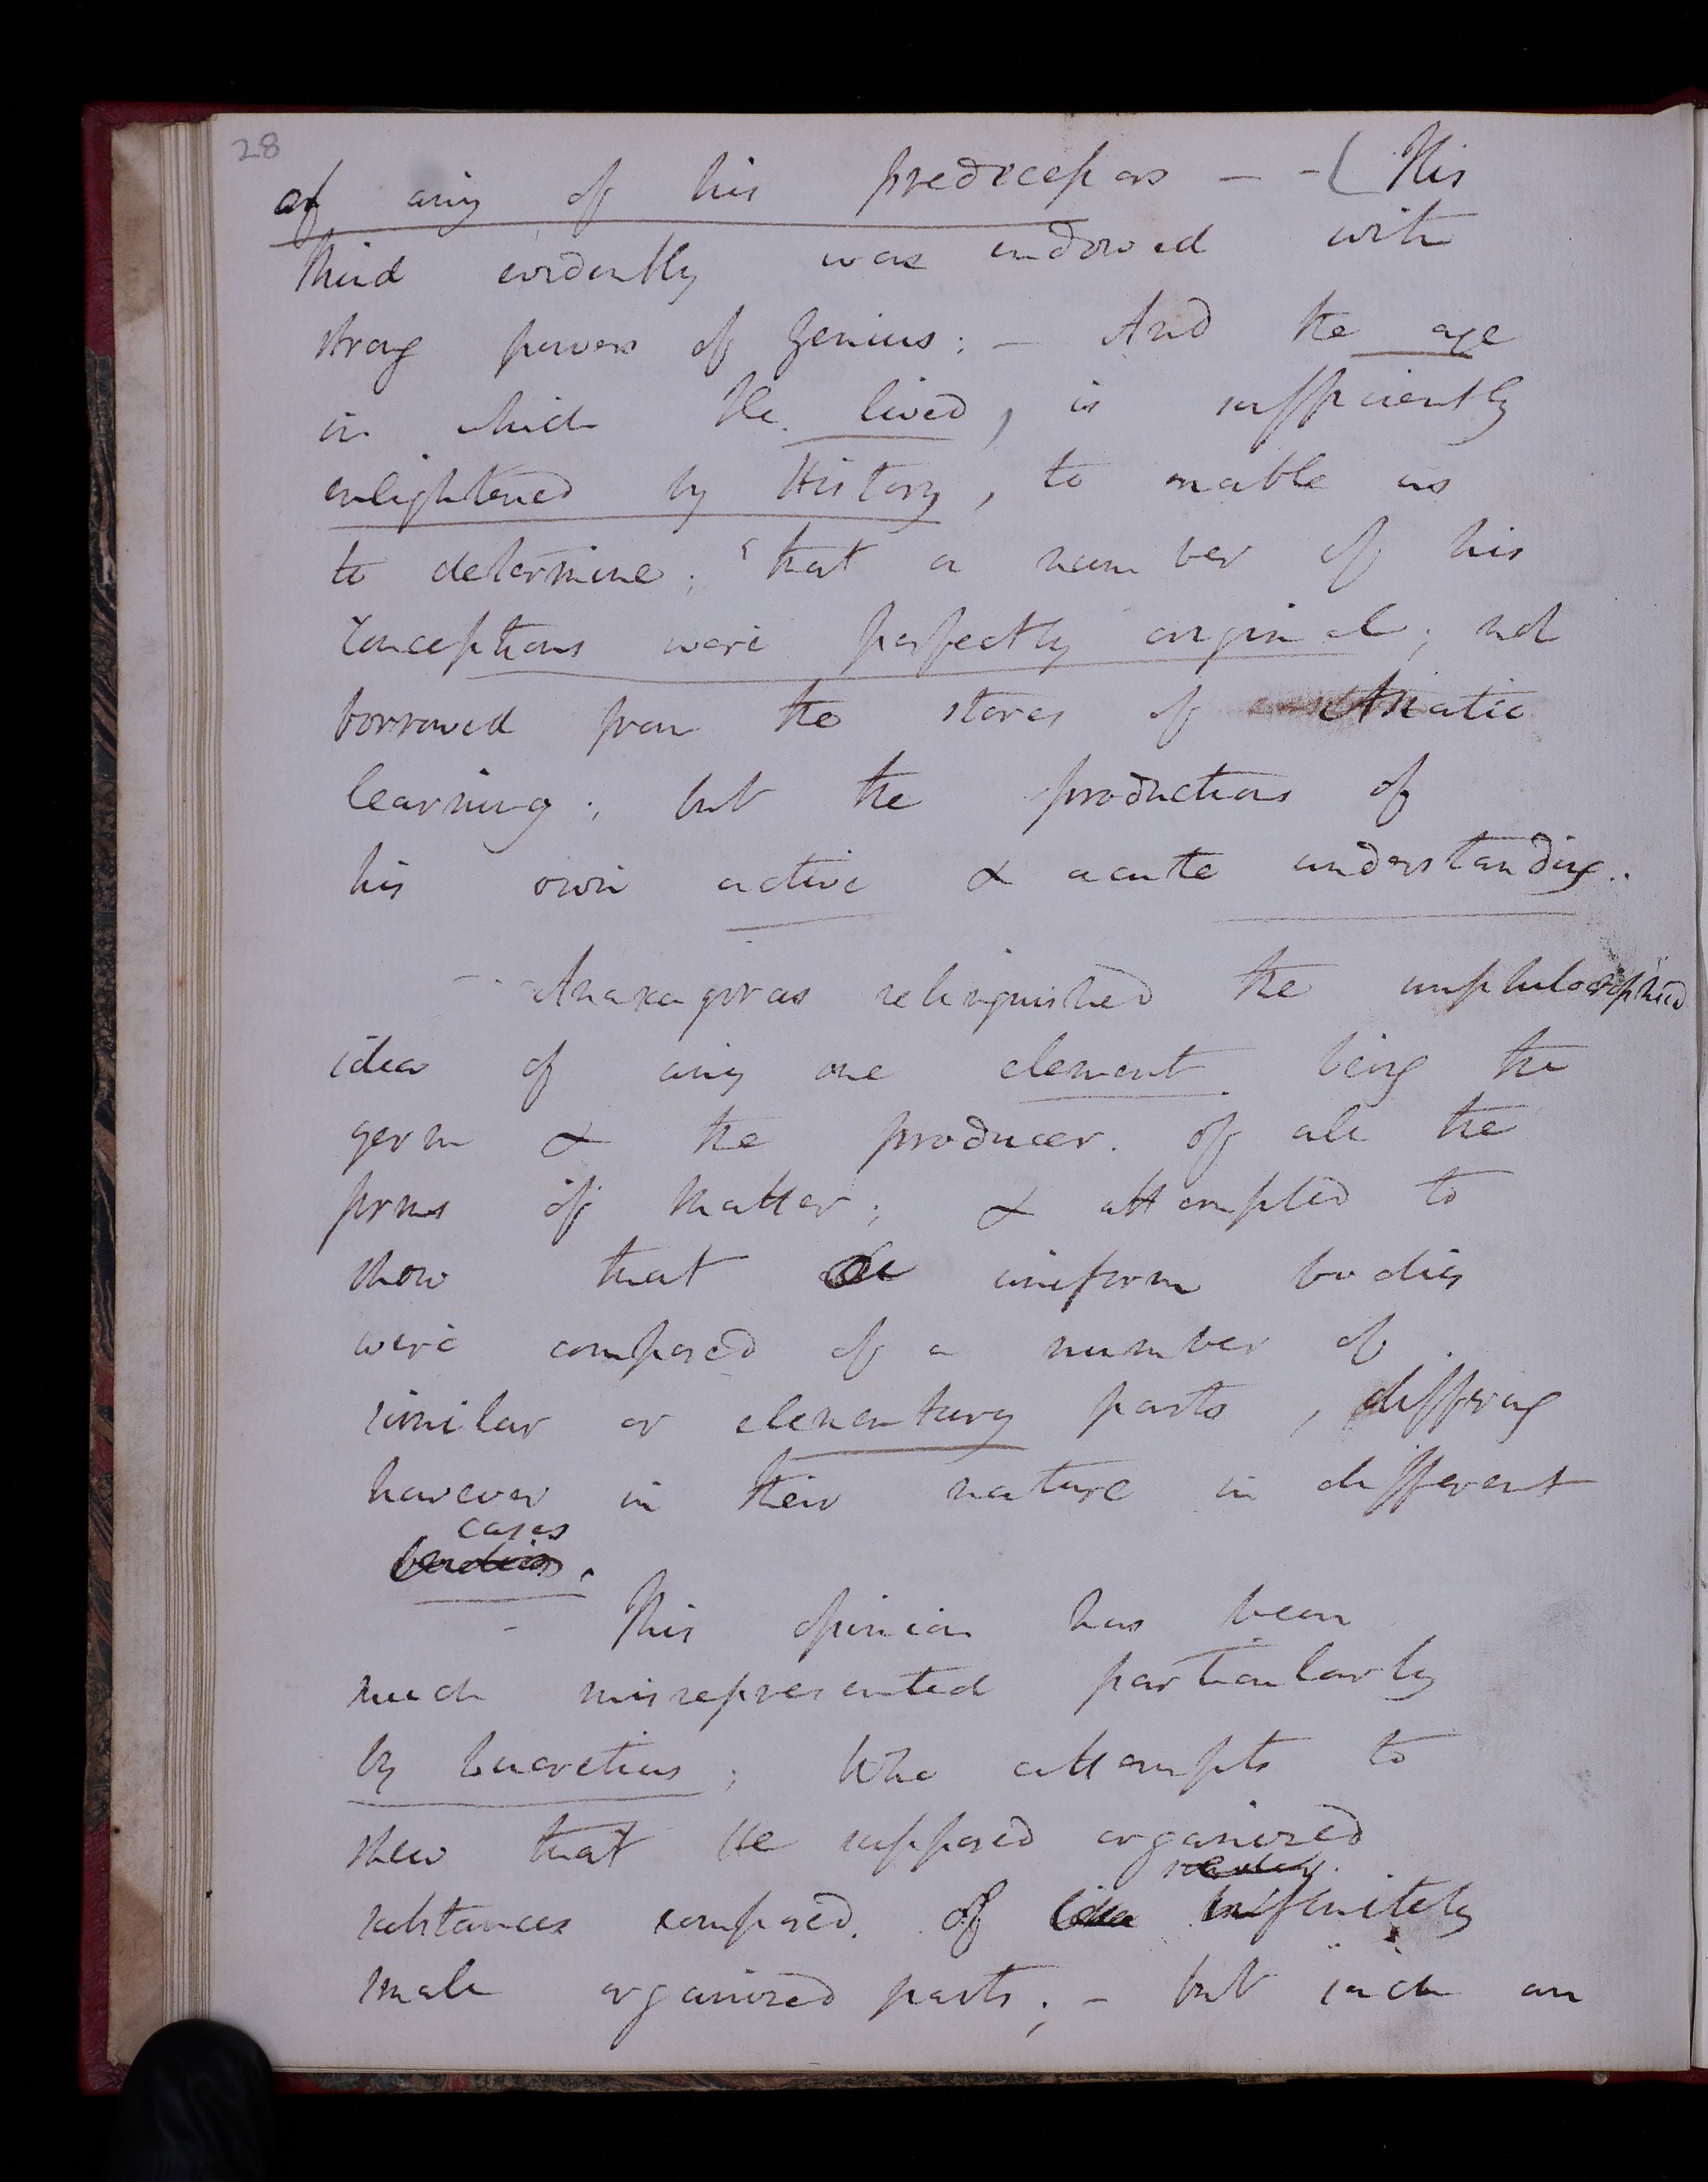 28
of any of his predecessors - - ( His
Mind evidently was endowed with
strong powers of Genius: - And the age
in which He lived, is sufficiently
enlightened by History, to enable us
to determine; that a number of his
conceptions were perfectly original; not
borrowed from the stores of Asiatic
learning; but the productions of
his own active & acute understanding..
- Anaxagoras relinguished the unphilosophical
idea of any one element being the
germ & the producer. of all the
forms of Matter; & attempted to
show that uniform bodies
were composed of a number of
similar or elementary parts, differing
however in their nature in different
cases
bodies.
- This opinion has been
much misrepresented particularly
by Lucretius; Who attempts to
shew that He supposed organized
substances composed. of infinitely
small organized parts; - but such an